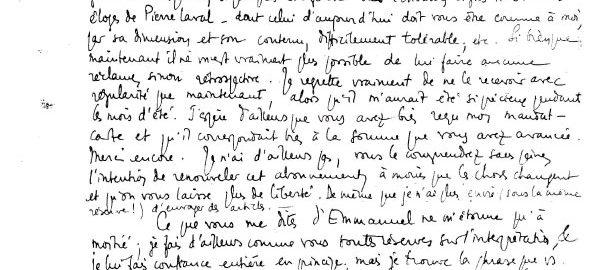 éloges de Pierre Laval – dont celui d'aujourd'hui doit vous être comme à moi,
par sa dimension et son contenu, difficilement tolérable, etc. Si bien que
maintenant il ne m'est vraiment plus possible de lui faire aucune
réclame, sinon rétrospective. Je regrette vraiment de ne le recevoir avec
régularité que maintenant, alors qu'il m'aurait été si précieux pendant
les mois d'été. J'espère d'ailleurs que vous avez bien reçu mon mandat-
carte et qu'il correspondait bien à la somme que vous avez avancée.
Merci encore. Je n'ai d'ailleurs pas, vous le comprendrez sans peine,
l'intention de renouveler cet abonnement, à moins que les choses changent
et qu'on vous laisse plus de liberté. De même que je n'ai plus envie (sous la même
réserve !) d'envoyer des articles.
Ce que vous me dites d'Emmanuel ne m'étonne qu'à
moitié ; je fais d'ailleurs comme vous toutes réserves sur l'interprétation,
je lui fais confiance entière en principe, mais je trouve la phrase que vs.